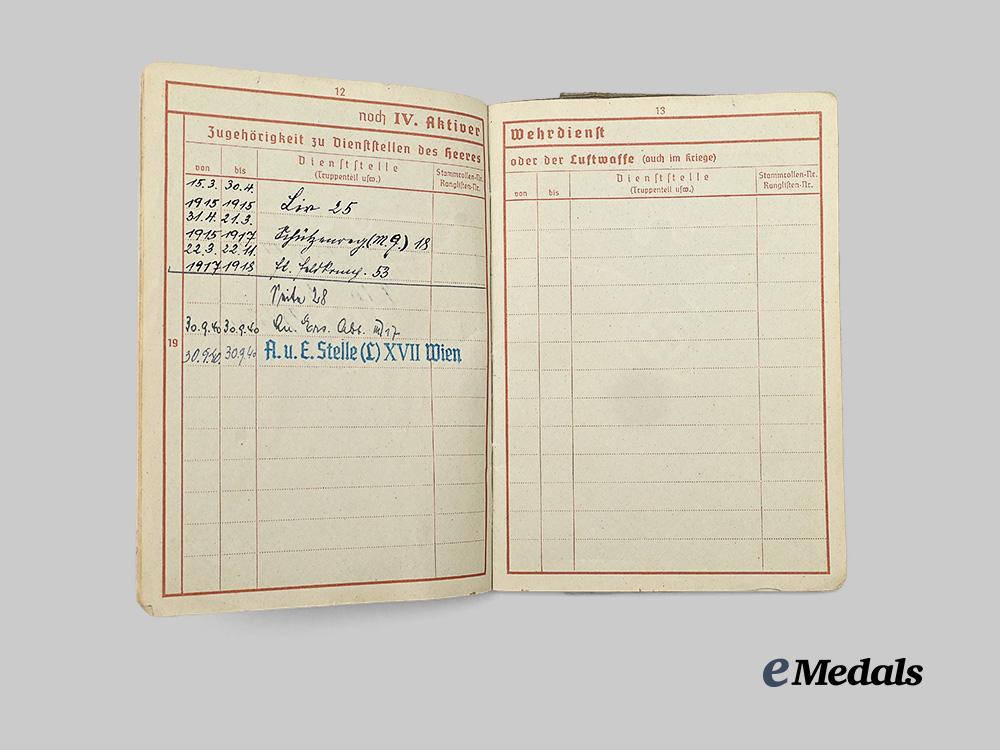 12
noch IV. Aktiver
Zugehörigkeit zu Dienststellen des Heeres
von bis Dienststelle (Truppenteil usw.) Stammrollen-Nr. Ranglisten-Nr.
15.3. 30.4.
1915 1915 Lir 25
31.4. 21.3.
1915 1917 Schützenreg. (M.G.) 18
22.3. 22.11.
1917 1918 53
Seite 28
30.9.40 30.9.40 Ers. Abt. 17
19
30.9.40 30.9.40 A. u. E. Stelle (L) XVII Wien
13
Wehrdienst
oder der Luftwaffe (auch im Kriege)
von bis Dienststelle (Truppenteil usw.) Stammrollen-Nr. Ranglisten-Nr.
eMedals